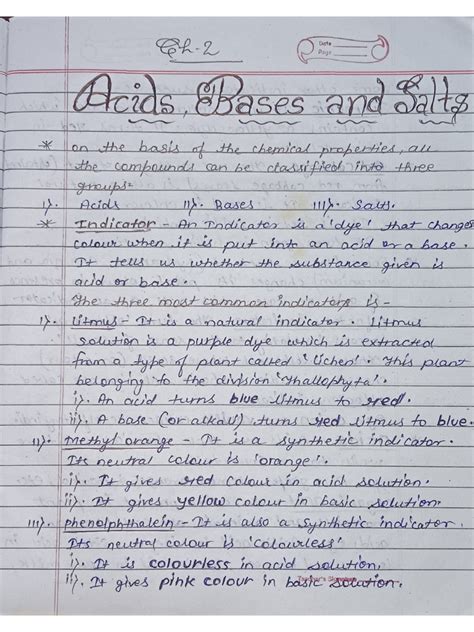 Ch-2
Date
Page
Acids, Bases and Salts
* On the basis of the chemical properties, all
the compounds can be classified into three
groups-
I). Acids II). Bases III). Salts.
* Indicator - An Indicator is a 'dye' that changes
colour when it is put into an acid or a base.
It tells us whether the substance given is
acid or base.
The three most common indicators is -
I). Litmus - It is a natural indicator. Litmus
solution is a purple dye which is extracted
from a type of plant called 'Lichen'. This plant
belonging to the division 'Thallophyta'.
i). An acid turns blue litmus to red.
ii). A base (or alkali) turns red litmus to blue.
II). Methyl orange - It is a synthetic indicator.
Its neutral colour is 'orange'.
i). It gives red colour in acid solution.
ii). It gives yellow colour in basic solution.
III). Phenolphthalein - It is also a synthetic indicator.
Its neutral colour is 'colourless'
i). It is colourless in acid solution.
ii). It gives pink colour in basic solution.